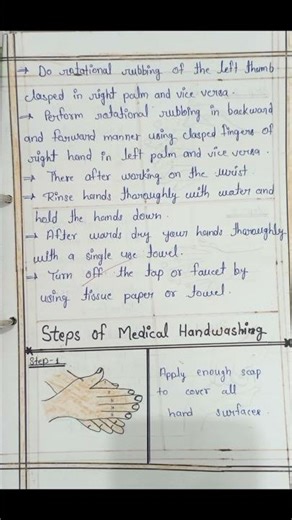 → Do rotational rubbing of the left thumb
clasped in right palm and vice versa.
→ Perform rotational rubbing in backward
and forward manner using clasped fingers of
right hand in left palm and vice versa.
→ There after working on the wrist
→ Rinse hands thoroughly with water and
hold the hands down.
→ After wards dry your hands thoroughly
with a single use towel.
→ Turn off the tap or faucet by
using tissue paper or towel.
Steps of Medical Handwashing
Step-1
Apply enough soap
to cover all
hand surfaces.